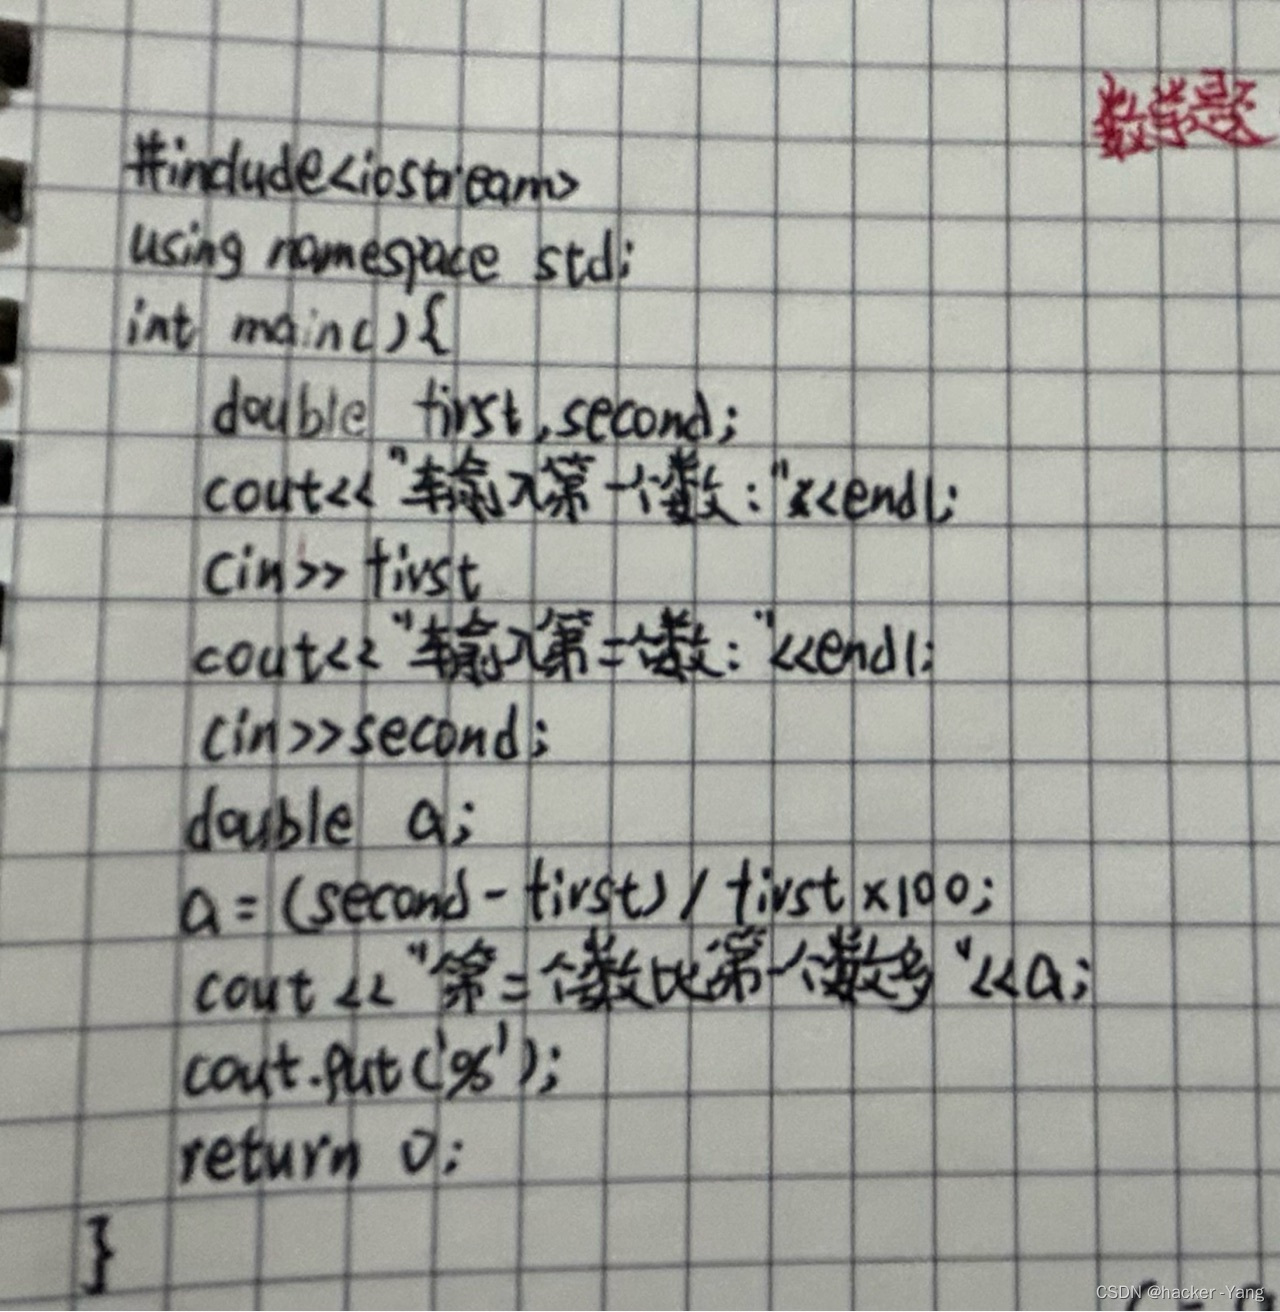 数学题
#include<iostream>
using namespace std;
int main(){
double first,second;
cout<<"输入第一个数:"<<endl;
cin>>first
cout<<"输入第二个数:"<<endl;
cin>>second;
double a;
a=(second-first)/first×100;
cout<<"第二个数比第一个数多"<<a;
cout.put('%');
return 0;
}
CSDN @hacker-Yang